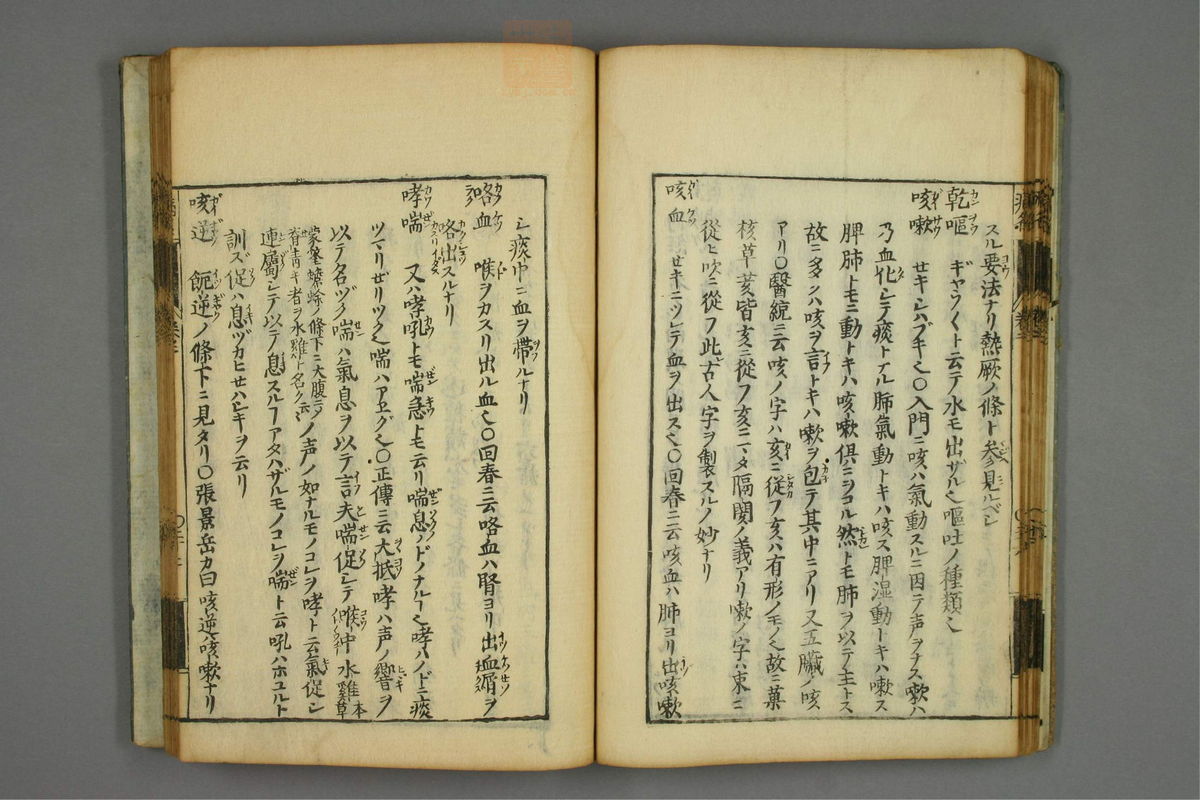 スル要法ナリ熱厥ノ條ト参見ルベシ
乾嘔 ギャウ〱ト云テ水モ出ザル也嘔吐ノ種類也
咳嗽 セキシハブキ也〇入門ニ咳ハ氣動スルニ因テ声ヲナス嗽ハ
乃血化シテ痰トナル肺氣動トキハ咳ス脾湿動トキハ嗽ス
脾肺トモニ動トキハ咳嗽俱ニヲコル然トモ肺ヲ以テ主トス
故ニ多クハ咳ヲ言トキハ嗽ヲ包テ其中ニアリ又五臟ノ咳
アリ〇醫統ニ云咳ノ字ハ亥ニ從フ亥ハ有形ノモノ也故ニ菓
核草荄皆亥ニ從フ亥ニマタ隔閡ノ義アリ嗽ノ字ハ束ニ
從ヒ吹ニ從フ此古人字ヲ製スルノ妙ナリ
咳血 セキニツレテ血ヲ出ス也〇回春ニ云咳血ハ肺ヨリ出咳嗽
シ痰中ニ血ヲ帶ルナリ
咯血 喉ヲカスリ出ル血也〇回春ニ云咯血ハ腎ヨリ出血屑ヲ
咯出スルナリ
哮喘 又ハ哮吼トモ喘急トモ云リ喘息ノドノナル也哮ハノドニ痰
ツマリゼリツク也喘ハアエグ也〇正傳ニ云大抵哮ハ声ノ響ヲ
以テ名ヅク喘ハ氣息ヲ以テ言夫喘促シテ喉中水雞本草
蒙筌ノ條下ニ大腹ニノ脊青キ者ヲ水雞ト名ク云ノ声ノ如ナルモノコレヲ哮ト云氣促シ
連屬シテ以テ息スルフアタハザルモノコレヲ喘ト云吼ハホユルト
訓ズ促ハ息ヅカヒセハシキヲ云リ
咳逆 呃逆ノ條下ニ見タリ〇張景岳カ曰咳逆ハ咳嗽ナリ